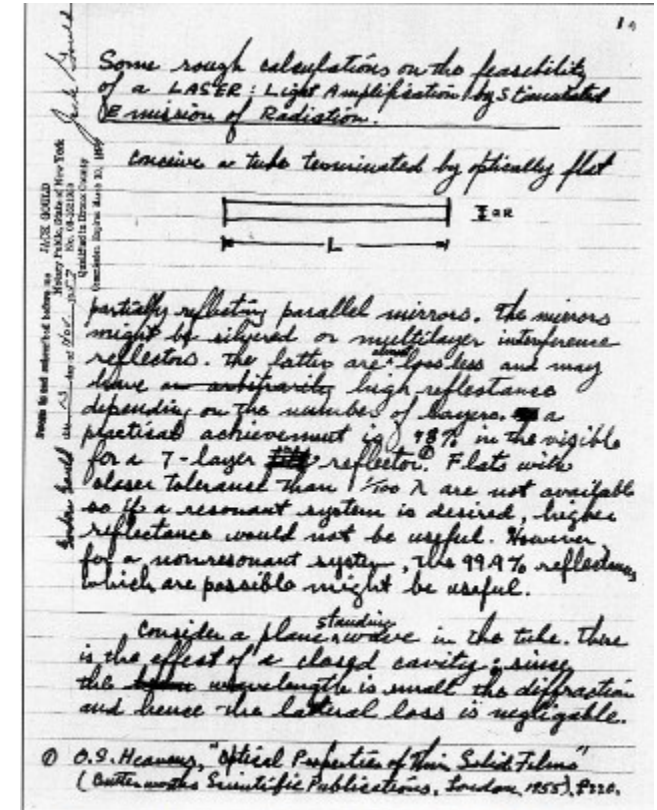 1.
Some rough calculations on the feasibility
of a LASER: Light Amplification by Stimulated
Emission of Radiation.
conceive a tube terminated by optically flat
L
partially reflecting parallel mirrors. The mirrors
might be silvered or multilayer interference
reflectors. The latter are almost lossless and may
have an arbitrarily high reflectance
depending on the number of layers. a
practical achievement is 98% in the visible
for a 7-layer reflector.① Flats with
closer tolerance than 1/100 λ are not available
so if a resonant system is desired, higher
reflectance would not be useful. However
for a nonresonant system, the 99.9% reflectances
which are possible might be useful.
Consider a plane standing wave in the tube. There
is the effect of a closed cavity; since
the wavelength is small the diffraction
and hence the lateral loss is negligable.
① O.S. Heavens, "Optical Properties of Thin Solid Films"
(Butterworths Scientific Publications, London, 1955), p220.
Jack Gould
JACK GOULD
Notary Public, State of New York
Qualified in Bronx County
Sworn to and subscribed before me
on 13 day of Nov. 1957
Gordon Gould